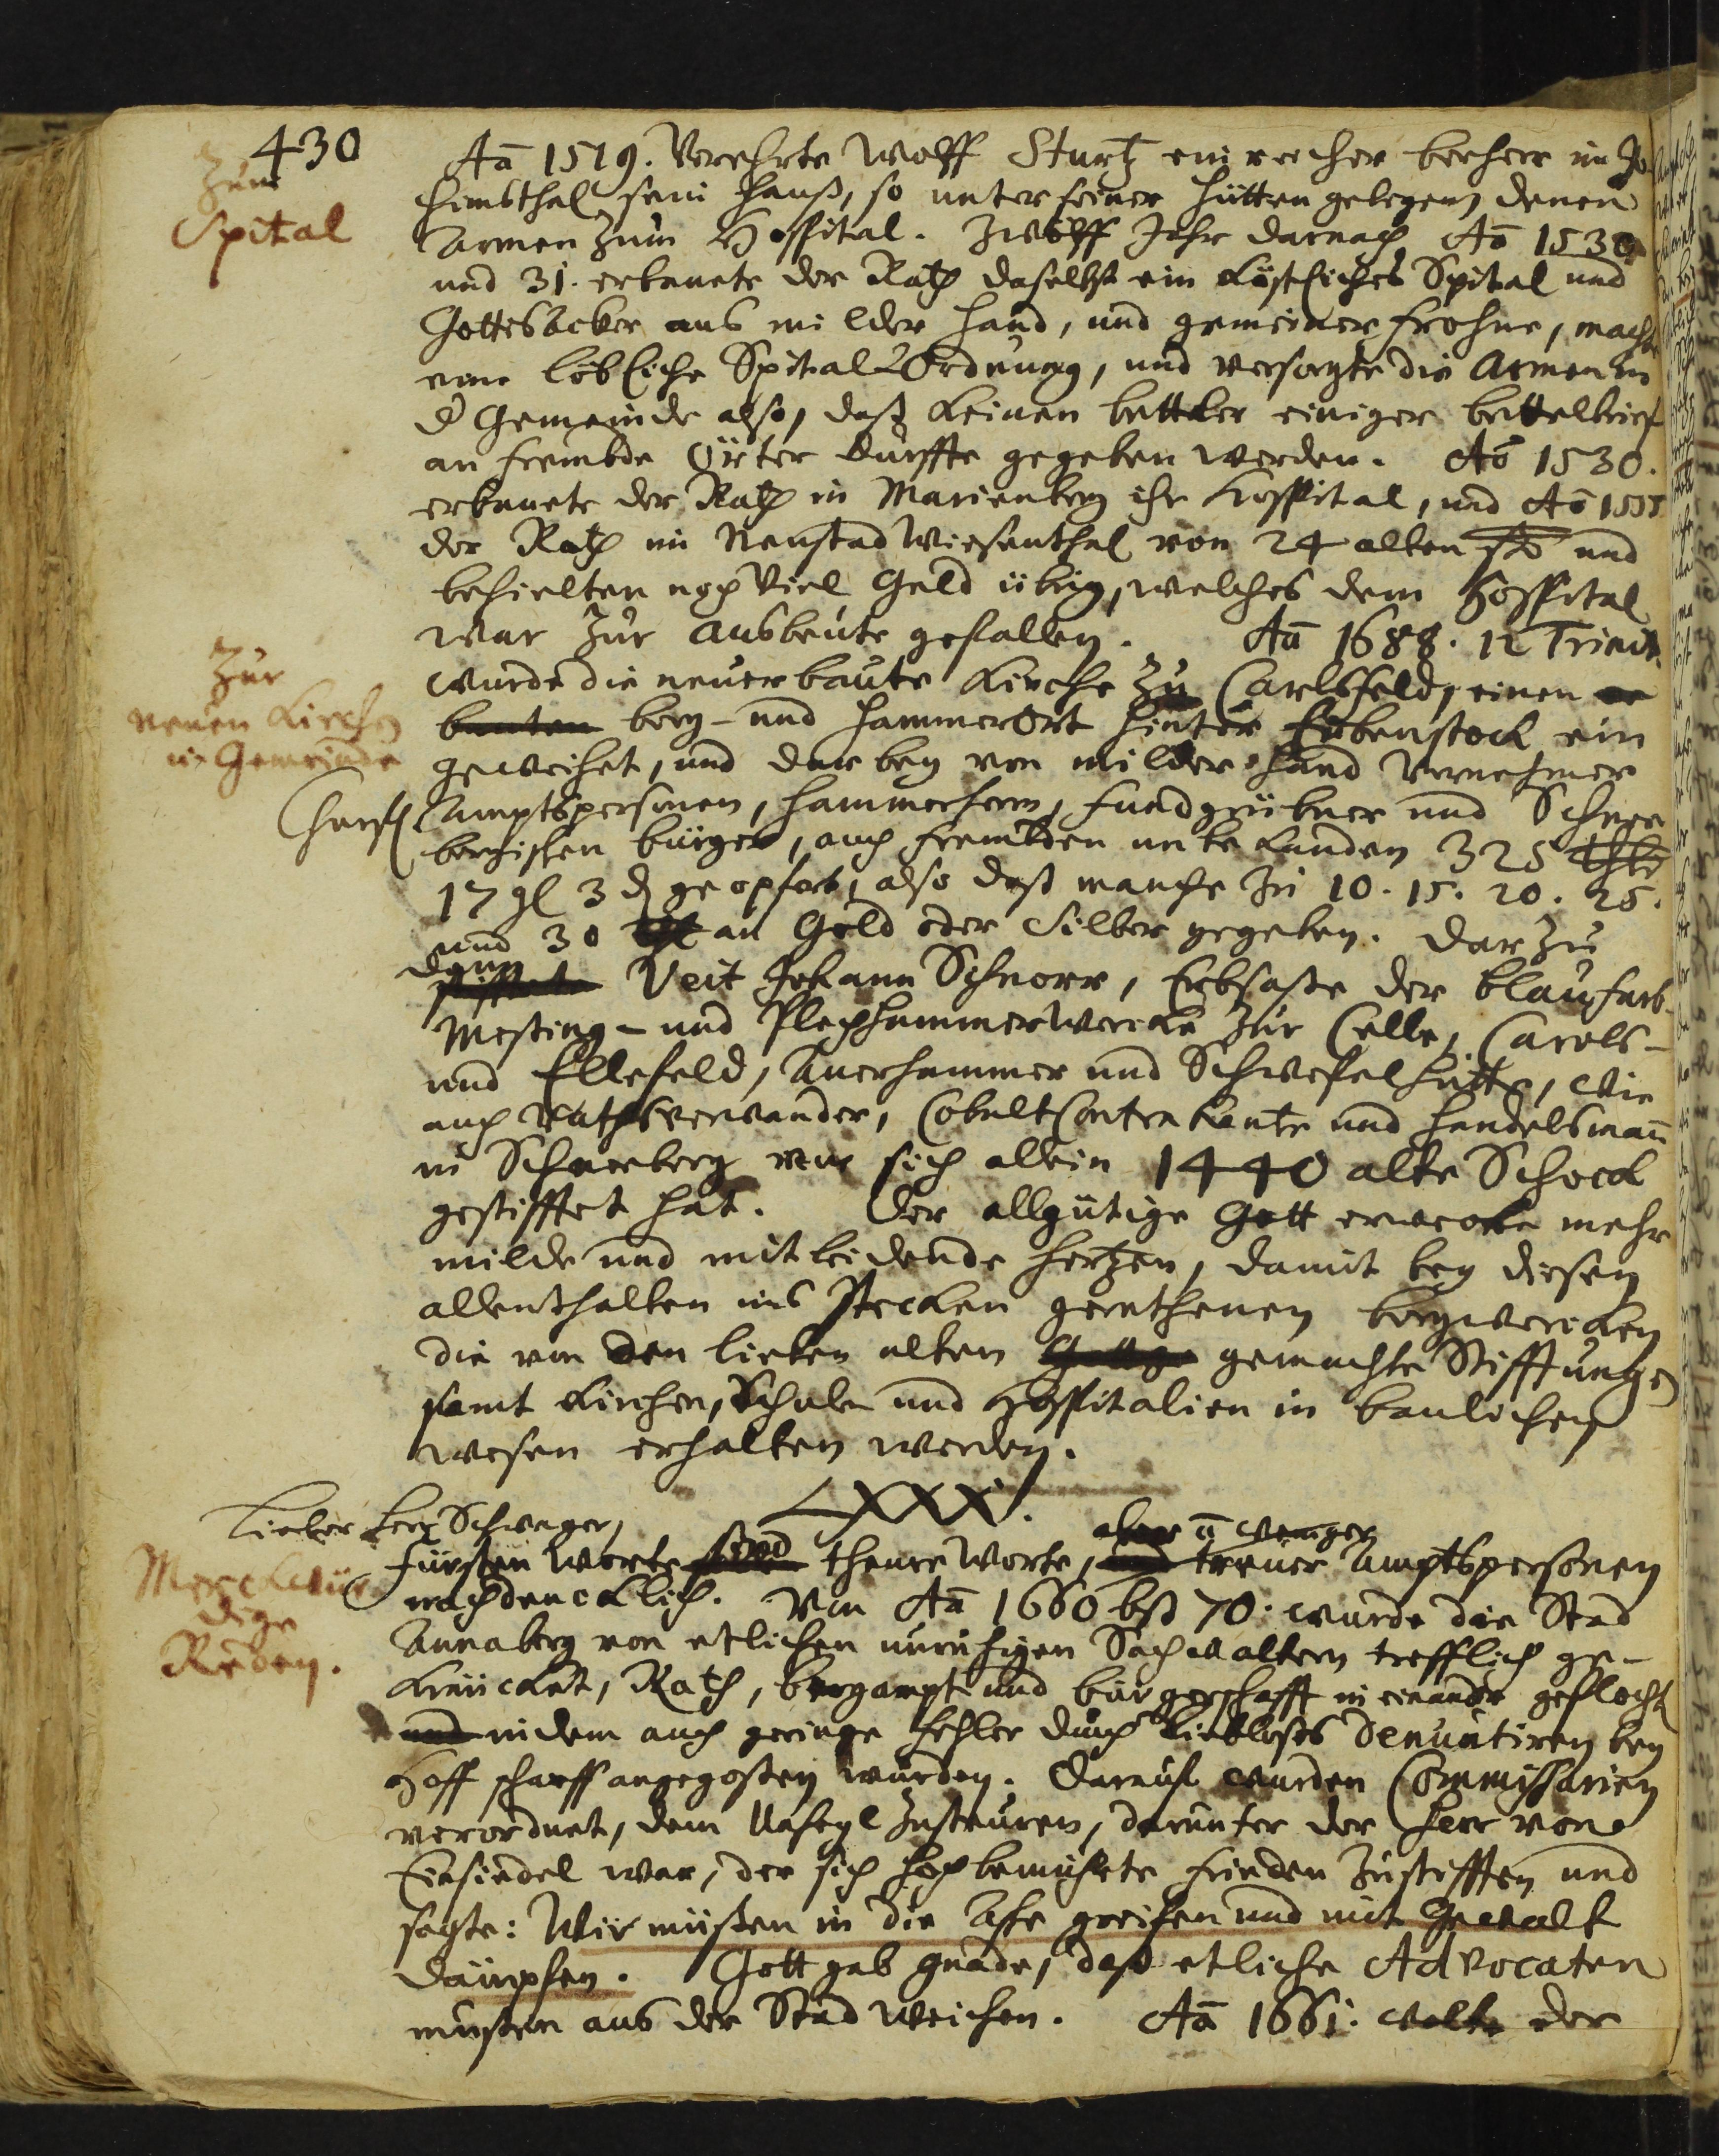 430
Zum
Spital
Aō 1519. Verehrte Wolff Sturtz ein reicher berherr im Jo
chimsthal sein Hauß, so unter seiner Hütten gelegen denen
Armen zum Hospital. Zwölff Jahr darnach Aō 1530
und 31. erbauete der Rath daselbst ein köstliches Spital und
Gottesacker aus milder Hand, und gemeiner Frohne, machte
eine löbliche Spital Ordnung, und versorgte die Armen in
d Gemeinde also, daß keinen bettler einiger bettelbrief
an frembde Örter durffte gegeben werden. Aō 1530.
erbauete der Rath in Marienberg ihr Hospital, und Aō 1555
der Rath im Neustad Wiesenthal von 24 alten ßo und
behielten noch viel Geld übrig, welches dem Hospital
war zur Ausbeute gefallen. Aō 1688. 12 Trinit.
Zur
neuen Kirchen
in Gemeinde
wurde die neuerbaute Kirche zu Carlsfeld, einen
bauten berg- und Hammerort hinter Eubenstock ein
geweihet, und dar bey von milder Hand vornehmer
Churfl Amptspersonen, Hammerherrn, Fundgrübner und Schnee
bergischen bürger, auch frembden unbekanden 325 thlr
17 gl 3 d geopfert, also daß manche zu 10. 15. 20. 25.
und 30 thl an Gold oder Silber gegeben. Darzu
denn
stifftete Veit Johann Schnorr, Erbsaße der blaufarb
Messing- und Blechhammerwercke zur Celle, Carols-
und Ellefeld, Auerhammer und Schwefelhütte, wie
auch Rathsverwander, Cobelt Contrahente und Handelsmañ
in Schneeberg vor sich allein 1440 alte Schock
gestifftet hat. Der allgütige Gott erwecke mehr
milde und mitleidende Hertzen, damit bey diesen
allenthalben ins Stecken gerathenen bergwercken
die von den lieben alten gemachte Stifftungen
samt Kirchen, Schulen und Hospitalien in baulichen
wesen erhalten werden.
LXXXI.
Lieber Herr Schwager,
Merckwür
dige
Reden.
aber ū weniger
Fürsten Worte sind theure Worte, und treuer Amptspersonen
nachdencklich. Von Aō 1660 biß 70. wurde die Stad
Annaberg von etlichen unruhigen Sachwaltern trefflich ge-
knückt, Rath, bergampt und bürgerschafft in einander geflocht
und indem auch geringe Fehler durch liebloses Denuntiren bey
Hoff scharff angegossen wurden. Darauf wurden Commissarien
verordnet, dem Unfug zusteuren, darunter der Herr von
Einsiedel war, der sich hoch bemühete Frieden zustifften und
sagte: Wir müßen in die Asche greifen und mit Gewalt
dämpfen. Gott gab Gnade, daß etliche Advocaten
musten aus der Stad weichen. Aō 1661. wolte der